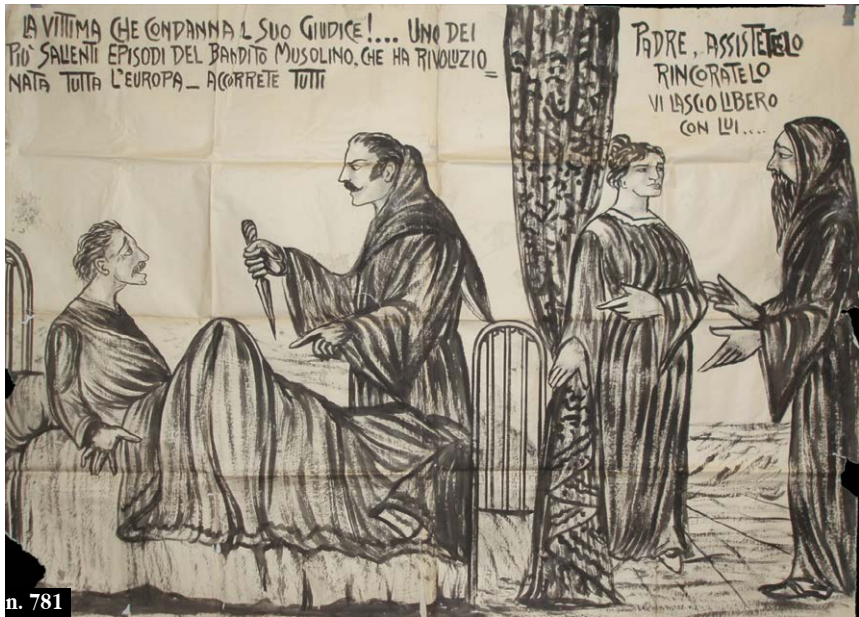 LA VITTIMA CHE CONDANNA L SUO GIUDICE!... UNO DEI
PIÙ SALIENTI EPISODI DEL BANDITO MUSOLINO, CHE HA RIVOLUZIO=
NATA TUTTA L'EUROPA_ ACORRETE TUTTI
PADRE, ASSISTETELO
RINCORATELO
VI LASCIO LIBERO
CON LUI....
n. 781